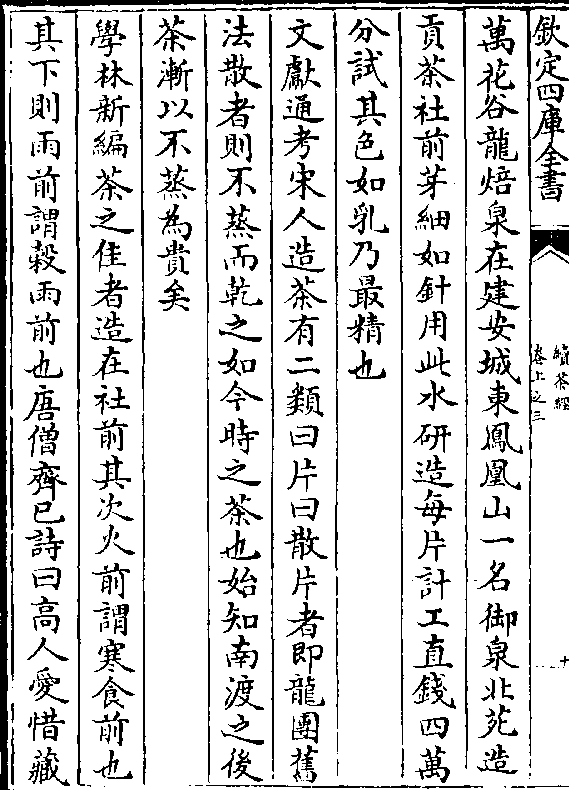 欽定四庫全書
續茶經
卷上之三
十
萬花谷龍焙泉在建安城東鳳凰山一名御泉北苑造
貢茶社前芽細如針用此水研造每片計工直錢四萬
分試其色如乳乃最精也
文獻通考宋人造茶有二類曰片曰散片者即龍團舊
法散者則不蒸而乾之如今時之茶也始知南渡之後
茶漸以不蒸為貴矣
學林新編茶之佳者造在社前其次火前謂寒食前也
其下則雨前謂穀雨前也唐僧齊已詩曰高人愛惜藏